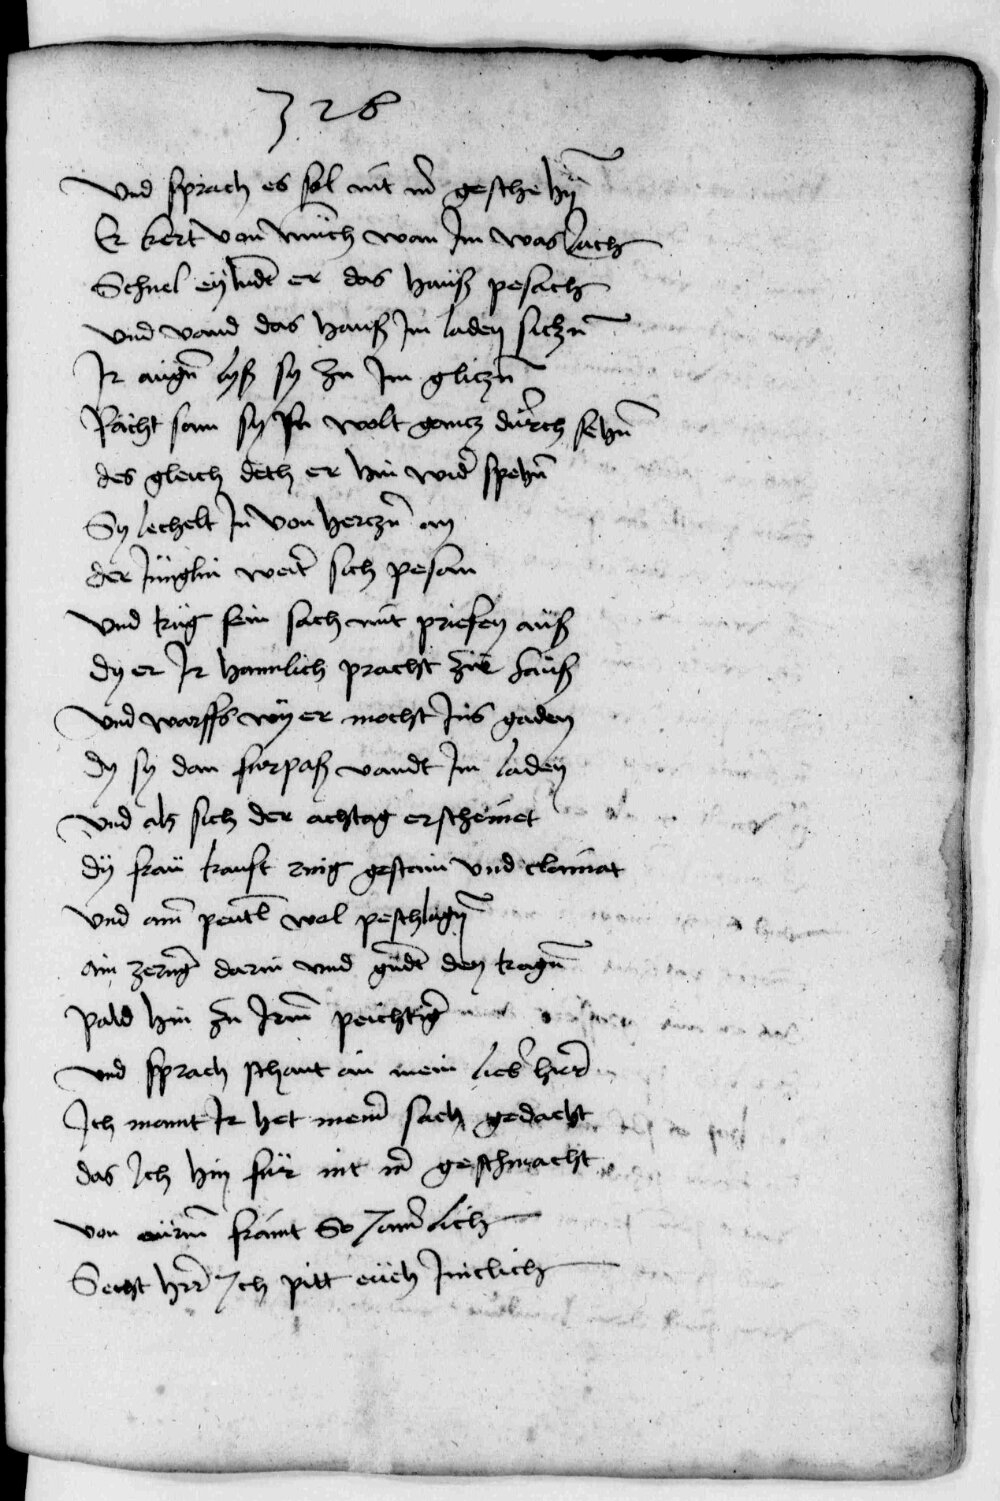 328
Und sprach es sol nit mer geschehn
Er kert von münch wan Im was Jach
Schnel eylundt er das hauß pesach
Und vand das hauß Im laden siczn
Ir augn lyß sy zu Im gliczn
Racht sam sy In wolt gancz durch sehn
des gleich deth er hin wider spehn
Sy lechelt In von herczn an
der Jünglin weiter sich pesan
Und trüg sein sach mit priefen auß
dy er Ir hamlich pracht zue hauß
Und warffs wy er mocht Ins gaden
dy sy dan furpaß vandt Im laden
Und als sich der achtag erscheinet
dy frau kauft ring gestain und clainat
Und ain peutl wol peschlagn
ain zerung darin und den kragn
Pald hin zu Irm peichtiger
und sprach schaut an mein lieber herr
Ich mant Ir het meiner sach gedacht
das Ich hin für nit mer geschmacht
von eürm fraint So Jamerlich
Secht herr Ich pitt eüch Iniclich